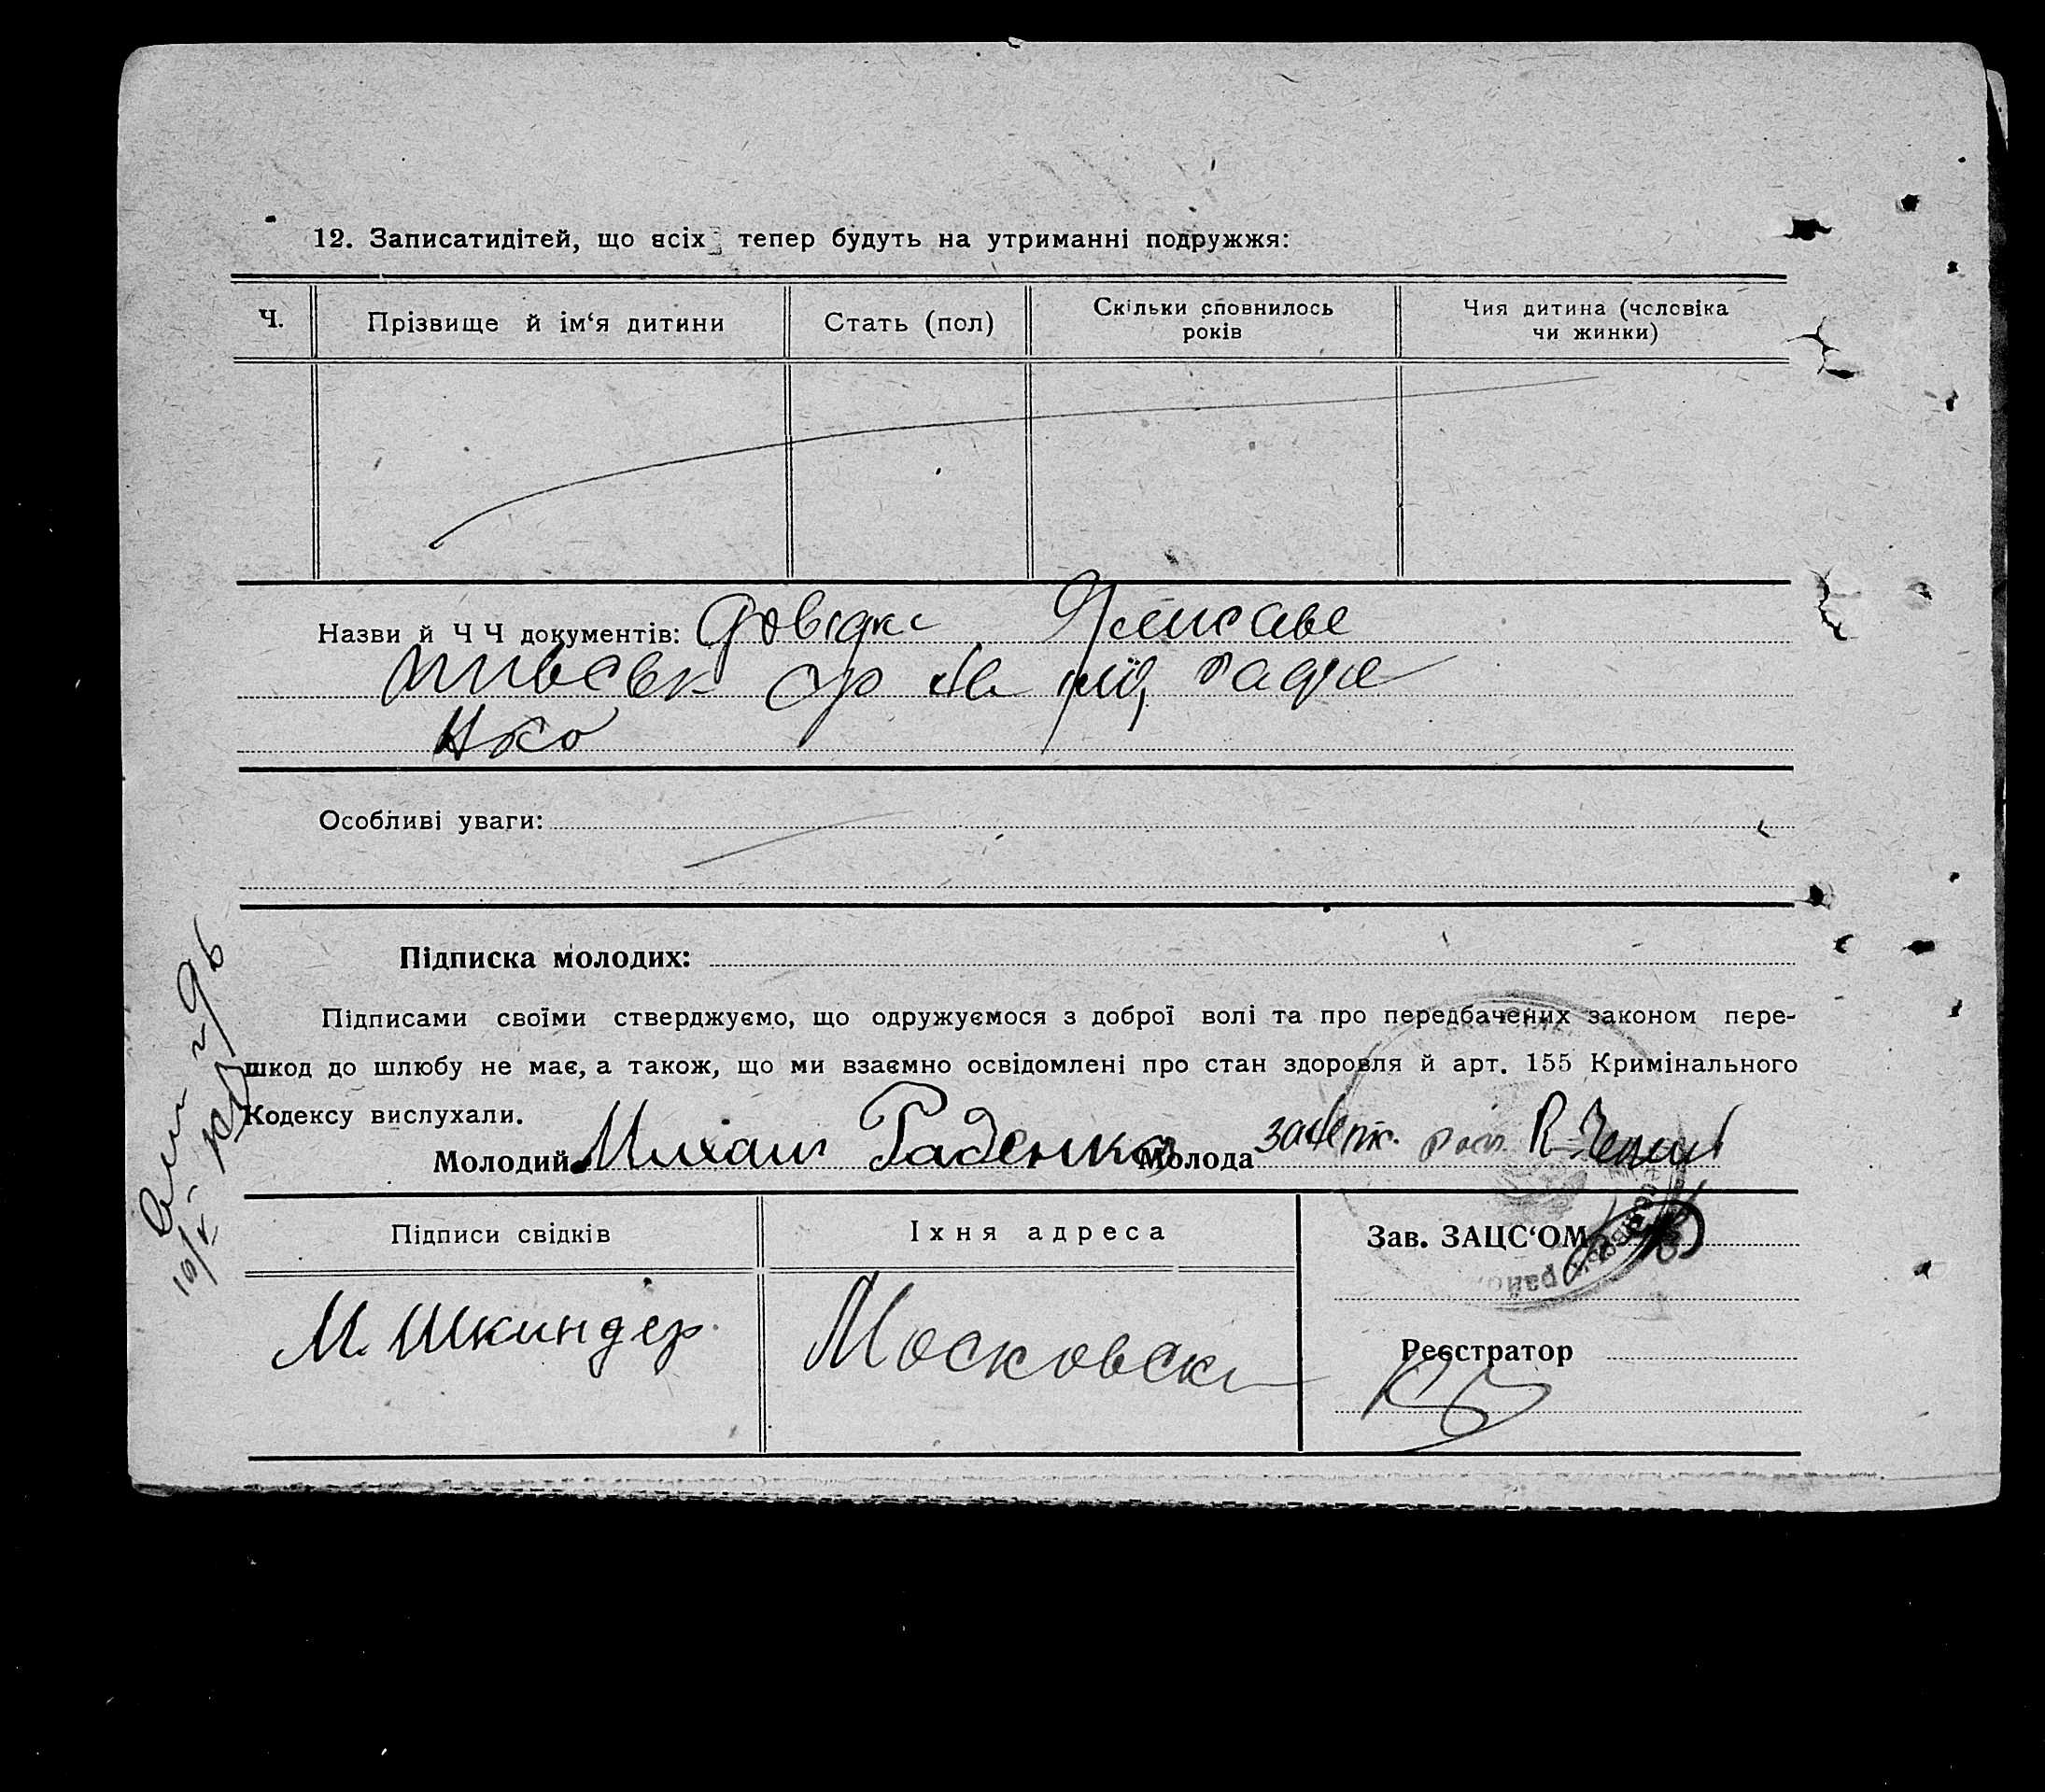 12. Записатидітей, що всіх тепер будуть на утриманні подружжя:
Ч.
Прізвище й ім‘я дитини
Стать (пол)
Скільки сповнилось
років
Чия дитина (чоловіка
чи жинки)
Назви й Ч Ч документів: Довідка
Особливі уваги:
Підписка молодих:
Підписами своїми стверджуємо, що одружуємося з доброї волі та про передбачених законом пере-
шкод до шлюбу не має, а також, що ми взаємно освідомлені про стан здоровля й арт. 155 Кримінального
Кодексу вислухали.
Молодий Михаил Раденко Молода
Підписи свідків
Їхня адреса
Зав. ЗАЦС‘ОМ
М. Шкиндер
Московськ
Реєстратор